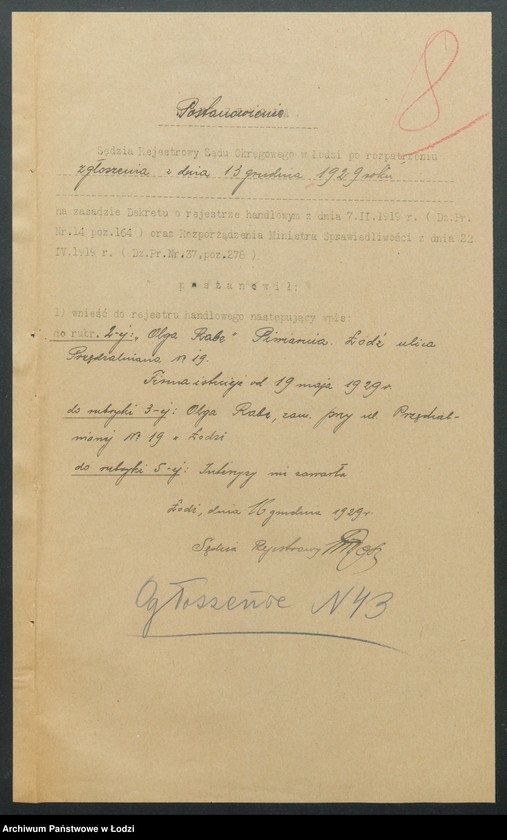 8
Postanowienie
Sędzia Rejestrowy Sądu Okręgowego w Łodzi po rozpatrzeniu
zgłoszenia z dnia 13 grudnia 1929 roku
na zasadzie Dekretu o rejestrze handlowym z dnia 7.II.1919 r. ( Dz.Pr.
Nr.14 poz.164 ) oraz Rozporządzenia Ministra Sprawiedliwości z dnia 22
IV.1919 r. ( Dz.Pr.Nr.37,poz.276 )
postanowił:
1) wnieść do rejestru handlowego następujący wpis:
do rubr. 2-ej: „Olga Rabe" Piwiarnia. Łódź ulica
Przędzalniana № 19.
Firma istnieje od 19 maja 1929 r.
do rubryki 3-ej: Olga Rabe, zam. przy ul. Przędzal-
nianej № 19 w Łodzi
do rubryki 5-ej: Intercyzy nie zawarła
Łódź, dnia 16 grudnia 1929 r.
Sędzia Rejestrowy
Ogłoszeńie N 43
Archiwum Państwowe w Łodzi